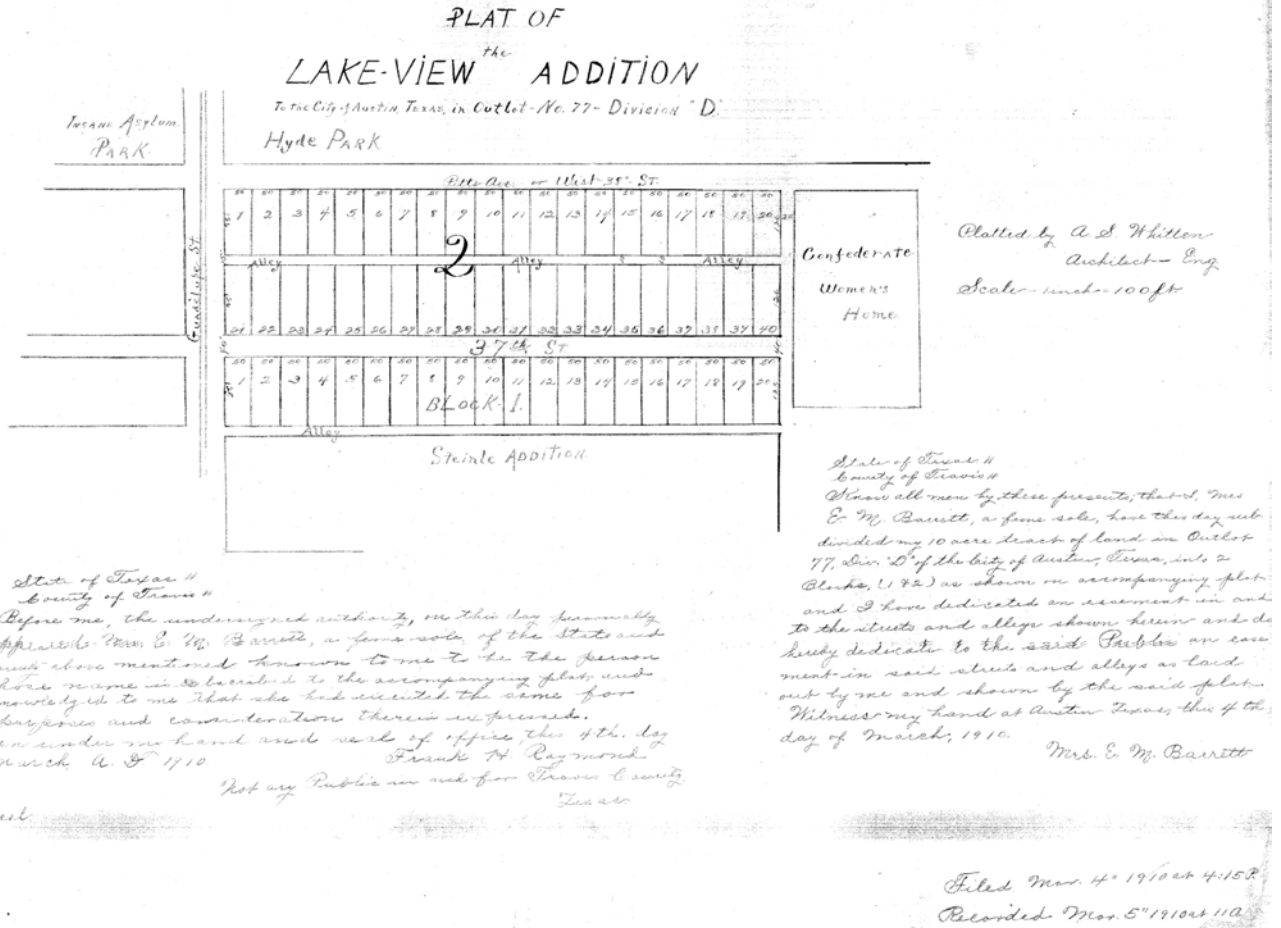 PLAT OF
the
LAKE-VIEW ADDITION
To the City of Austin, Texas, in Outlot-No. 77- Division "D"
Insane Asylum
PARK.
Hyde PARK
Ave. or West 38th ST.
50 50 50 50 50 50 50 50 50 50 50 50 50 50 50 50 50 50 50 50
1 2 3 4 5 6 7 8 9 10 11 12 13 14 15 16 17 18 19 20
2
Alley Alley Alley
Guadalupe ST
21 22 23 24 25 26 27 28 29 30 31 32 33 34 35 36 37 38 39 40
37th ST
50 50 50 50 50 50 50 50 50 50 50 50 50 50 50 50 50 50 50 50
1 2 3 4 5 6 7 8 9 10 11 12 13 14 15 16 17 18 19 20
BLOCK-1.
Alley
Steinle ADDITION
Confederate
Women's
Home.
Platted by A. S. Whitton
Architect- Eng
Scale- 1 inch- 100 ft.
State of Texas
County of Travis
Know all men by these presents, that I, Mrs
E. M. Barrett, a feme sole, have this day sub-
divided my 10 acre tract of land in Outlot
77, Div. "D" of the City of Austin, Texas, into 2
Blocks, (1 & 2) as shown on accompanying plat
and I have dedicated an easement in and
to the streets and alleys shown herein and do
hereby dedicate to the said Public an ease-
ment in said streets and alleys as laid
out by me and shown by the said plat.
Witness my hand at Austin Texas, this 4th,
day of March, 1910.
Mrs. E. M. Barrett
State of Texas
County of Travis
Before me, the undersigned authority, on this day personally
appeared Mrs. E. M. Barrett, a feme sole of the State and
above mentioned known to me to be the person
whose name is subscribed to the accompanying plat, and
to me that she had executed the same for
purposes and consideration therein expressed.
under my hand and seal of office, this 4th. day
March, A. D 1910
Frank H. Raymond
Notary Public in and for Travis County
Texas
Filed Mar. 4" 1910 at 4:15 P.
Recorded Mar. 5" 1910 at 11 A